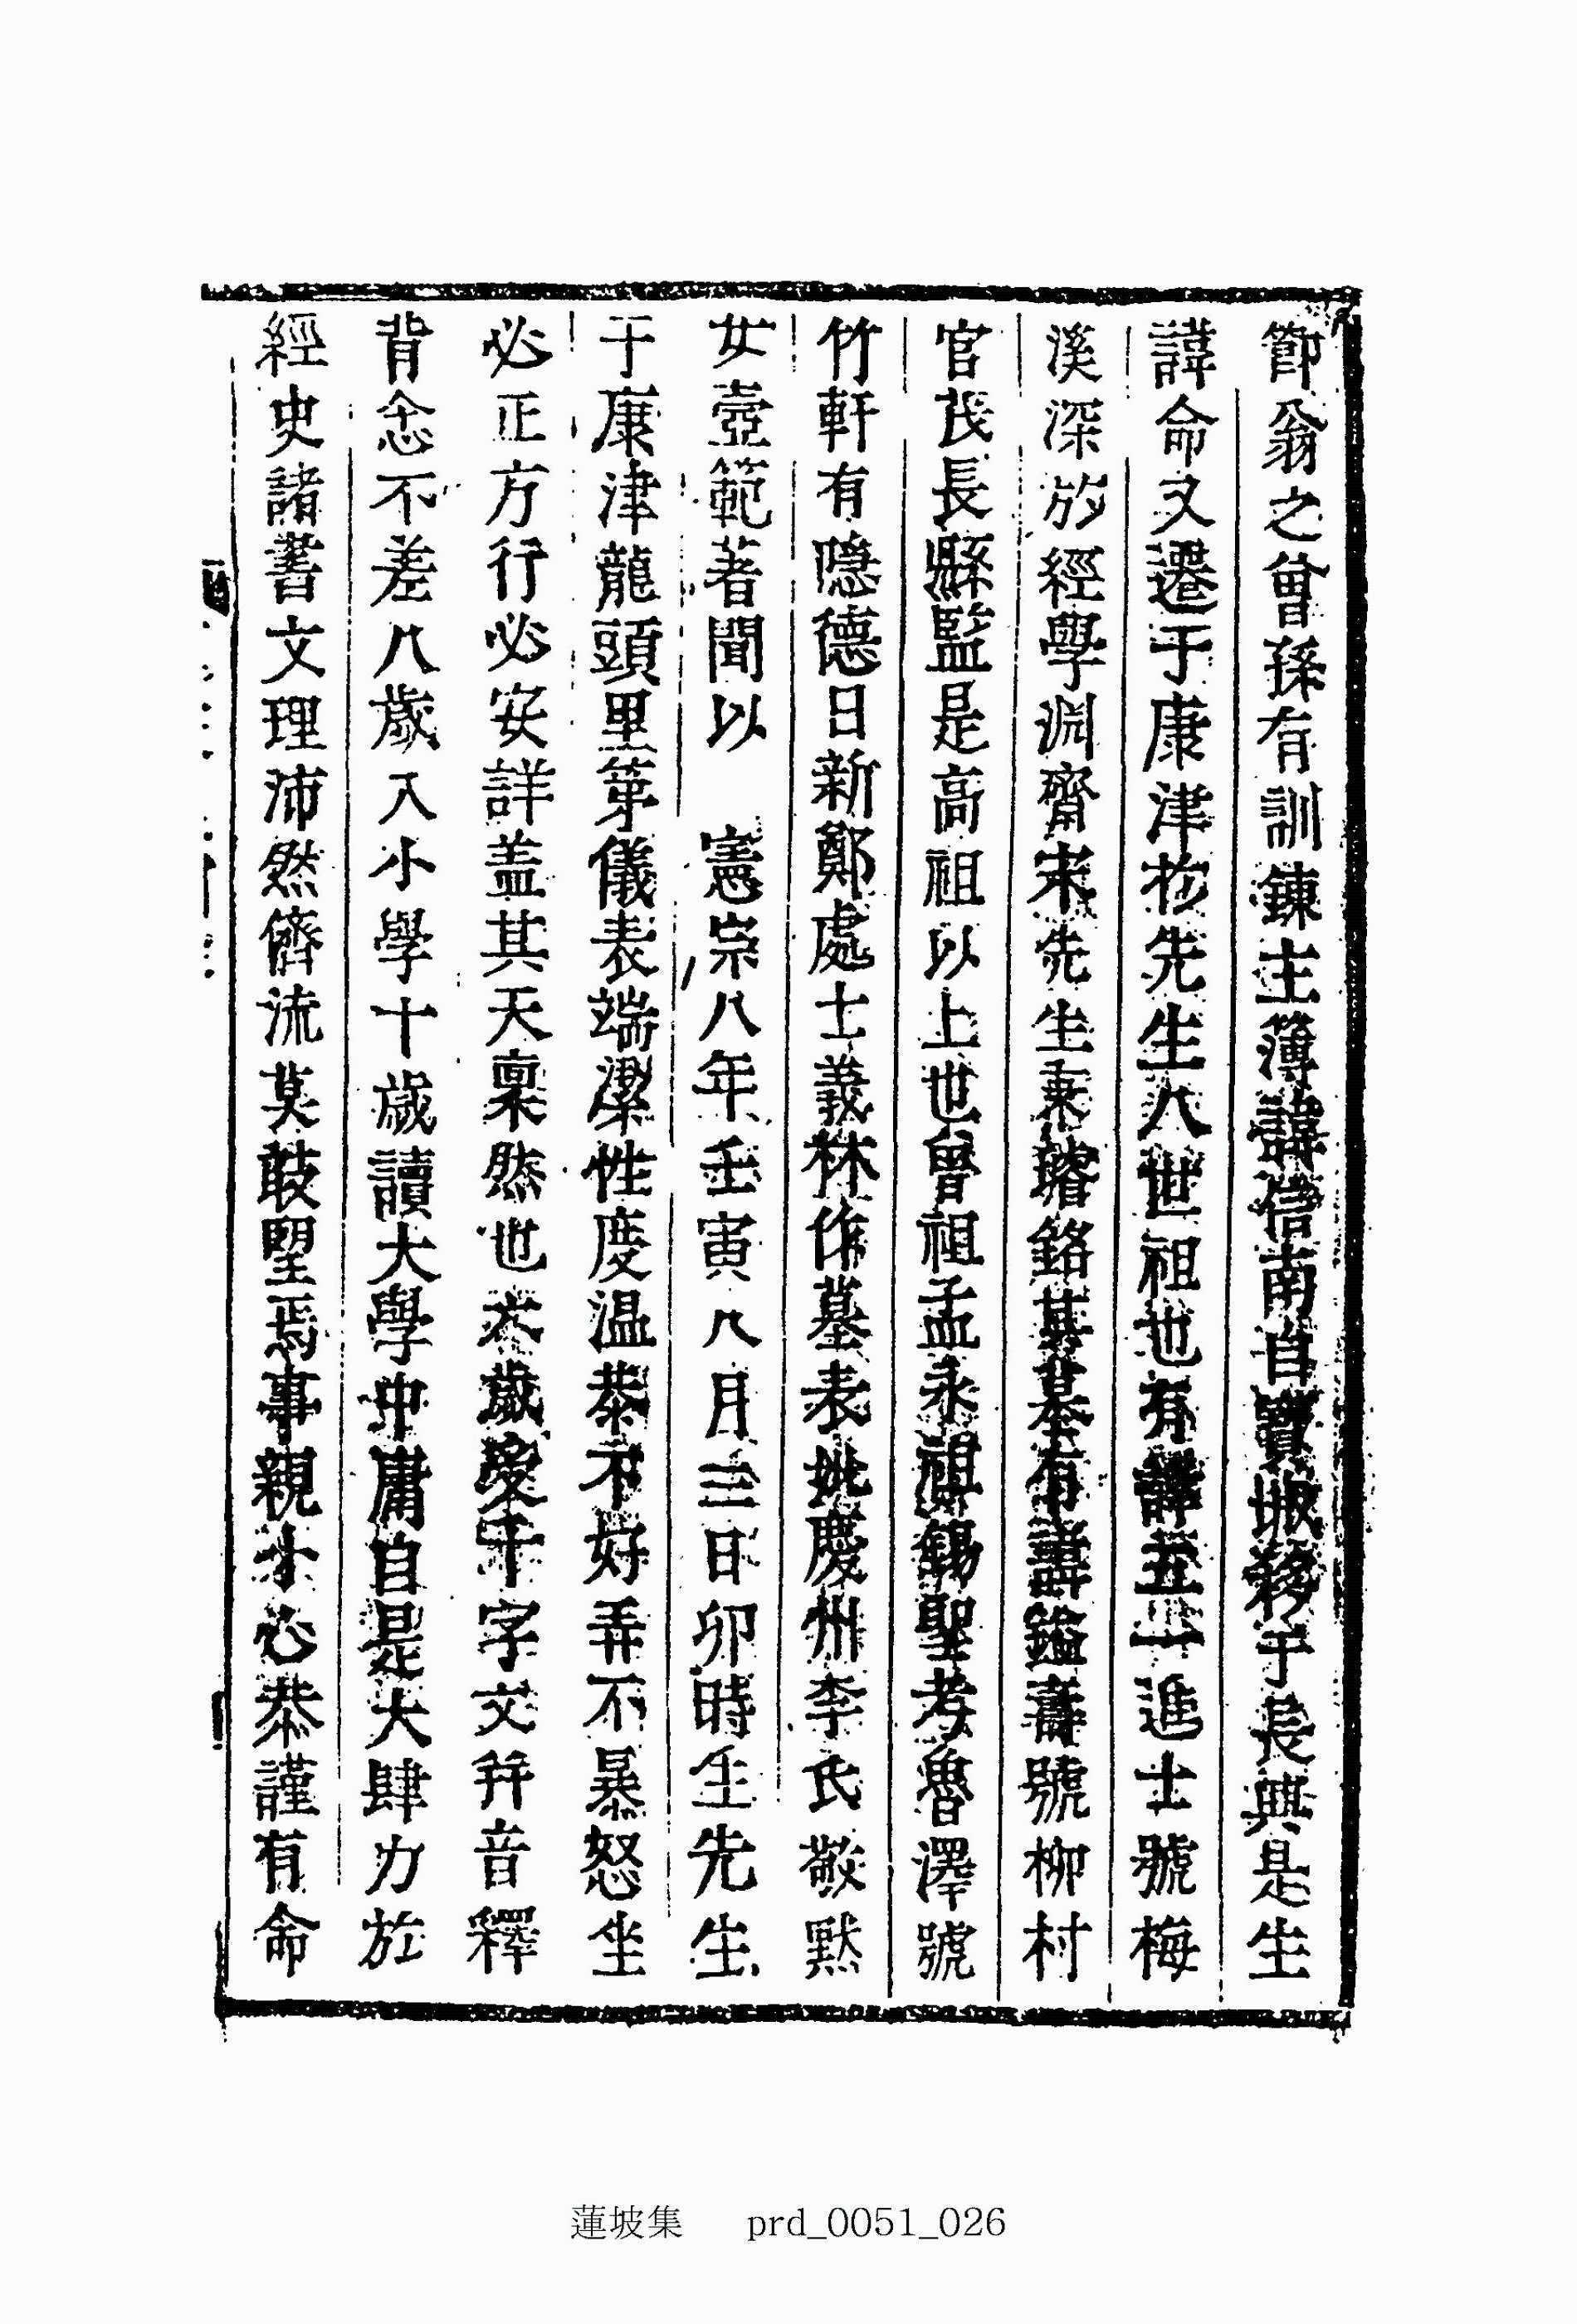 節翁之曾孫有訓鍊主簿諱信南自寶城移于長興是生
諱命又遷于康津於先生八世祖也有諱五一進士號梅
溪深於經學淵齋宋先生秉璿銘其墓有諱鎰壽號柳村
官茂長縣監是高祖以上世也曾祖孟永祖錫聖考魯澤號
竹軒有隱德日新鄭處士義林作墓表妣慶州李氏敬默
女壼範著聞以 憲宗八年壬寅八月三日卯時生先生
于康津龍頭里第儀表端潔性度温恭不好弄不暴怒坐
必正方行必安詳盖其天稟然也六歲受千字文幷音釋
背念不差八歲入小學十歲讀大學中庸自是大肆力於
經史諸書文理沛然儕流莫敢望焉事親小心恭謹有命
蓮坡集 prd_0051_026